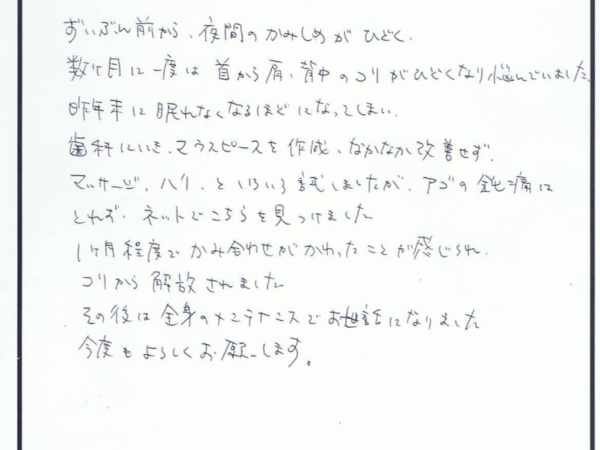 ずいぶん前から、夜間のかみしめがひどく、
数ヶ月に一度は首から肩、背中のコリがひどくなり悩んでいました。
昨年末に眠れなくなるほどになってしまい、
歯科にいき、マウスピースを作成、なかなか改善せず、
マッサージ、ハリ、といろいろ試しましたが、アゴの鈍痛は
とれず、ネットでこちらを見つけました
1ヶ月程度でかみ合わせがかわったことが感じられ、
コリから解放されました
その後は全身のメンテナンスでお世話になりました
今度もよろしくお願いします。